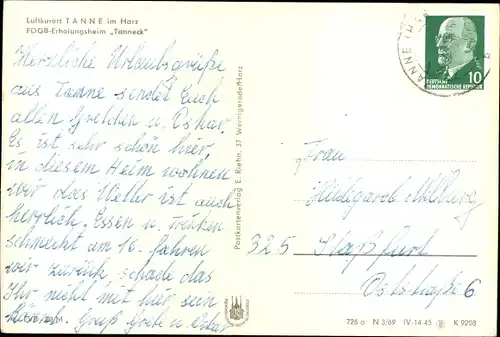 Luftkurort TANNE im Harz
FDGB-Erholungsheim „Tanneck"
Herzliche Urlaubsgrüße
aus Tanne sendet Euch
allen Gretchen u. Oskar.
Es ist sehr schön hier,
in diesem Heim wohnen
wir das Wetter ist auch
herrlich. Essen u. Trinken
schmeckt am 16. fahren
wir zurück schade das
Ihr nicht mit hier sein
könnt. Gruß Grete u. Oskar
Postkartenverlag E. Riehn, 37 Wernigerode/Harz
TANNE
10
DEUTSCHE
DEMOKRATISCHE REPUBLIK
Frau
Hildegard
325 Staßfurt
Oststraße 6
726 a N 3/69 IV-14-45 K 9208